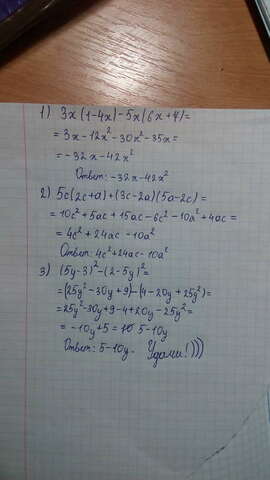 1) 3x(1-4x)-5x(6x+7)=
=3x-12x²-30x²-35x=
=-32x-42x²
Ответ: -32x-42x²
2) 5c(2c+a)+(3c-2a)(5a-2c)=
=10c²+5ac+15ac-6c²-10a²+4ac=
=4c²+24ac-10a²
Ответ: 4c²+24ac-10a²
3) (5y-3)²-(2-5y)²=
=(25y²-30y+9)-(4-20y+25y²)=
=25y²-30y+9-4+20y-25y²=
=-10y+5= 5-10y
Ответ: 5-10y. Удачи!)))